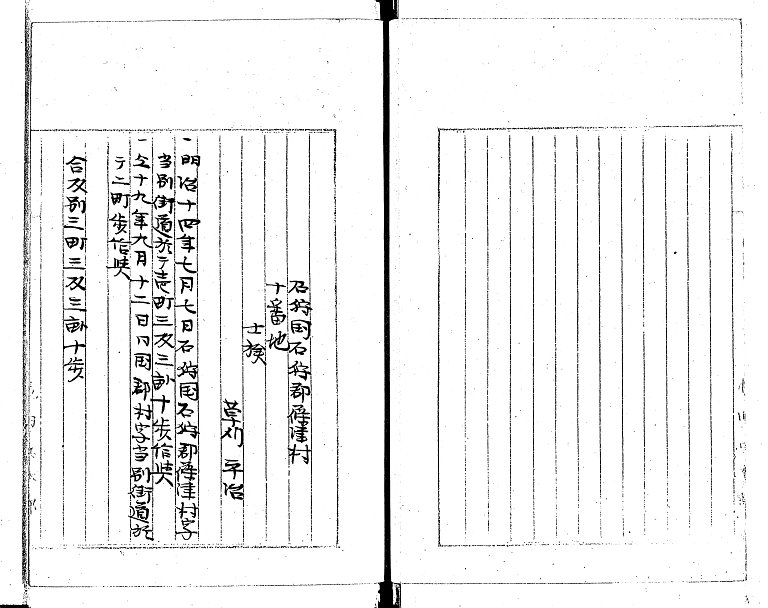 石狩国石狩郡篠津村
十番地
士族
草刈 平治
一明治十四年七月七日石狩国石狩郡篠津村字
当別街道於テ壱町三反三畝十歩
一仝十九年九月十二日同国郡村字当別街道於
テ二町歩
合反別三町三反三畝十歩